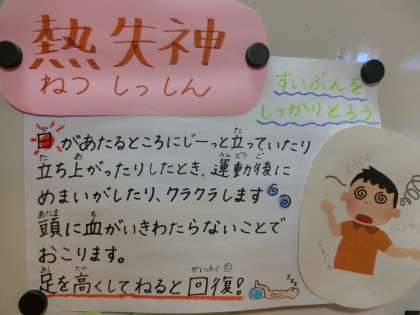 熱失神
ねつしっしん
すいぶんを
しっかりとろう
日があたるところにじーっと立っていたり
立ち上がったりしたとき、運動後に
めまいがしたり、クラクラします
頭に血がいきわたらないことで
おこります。
足を高くしてねると回復!